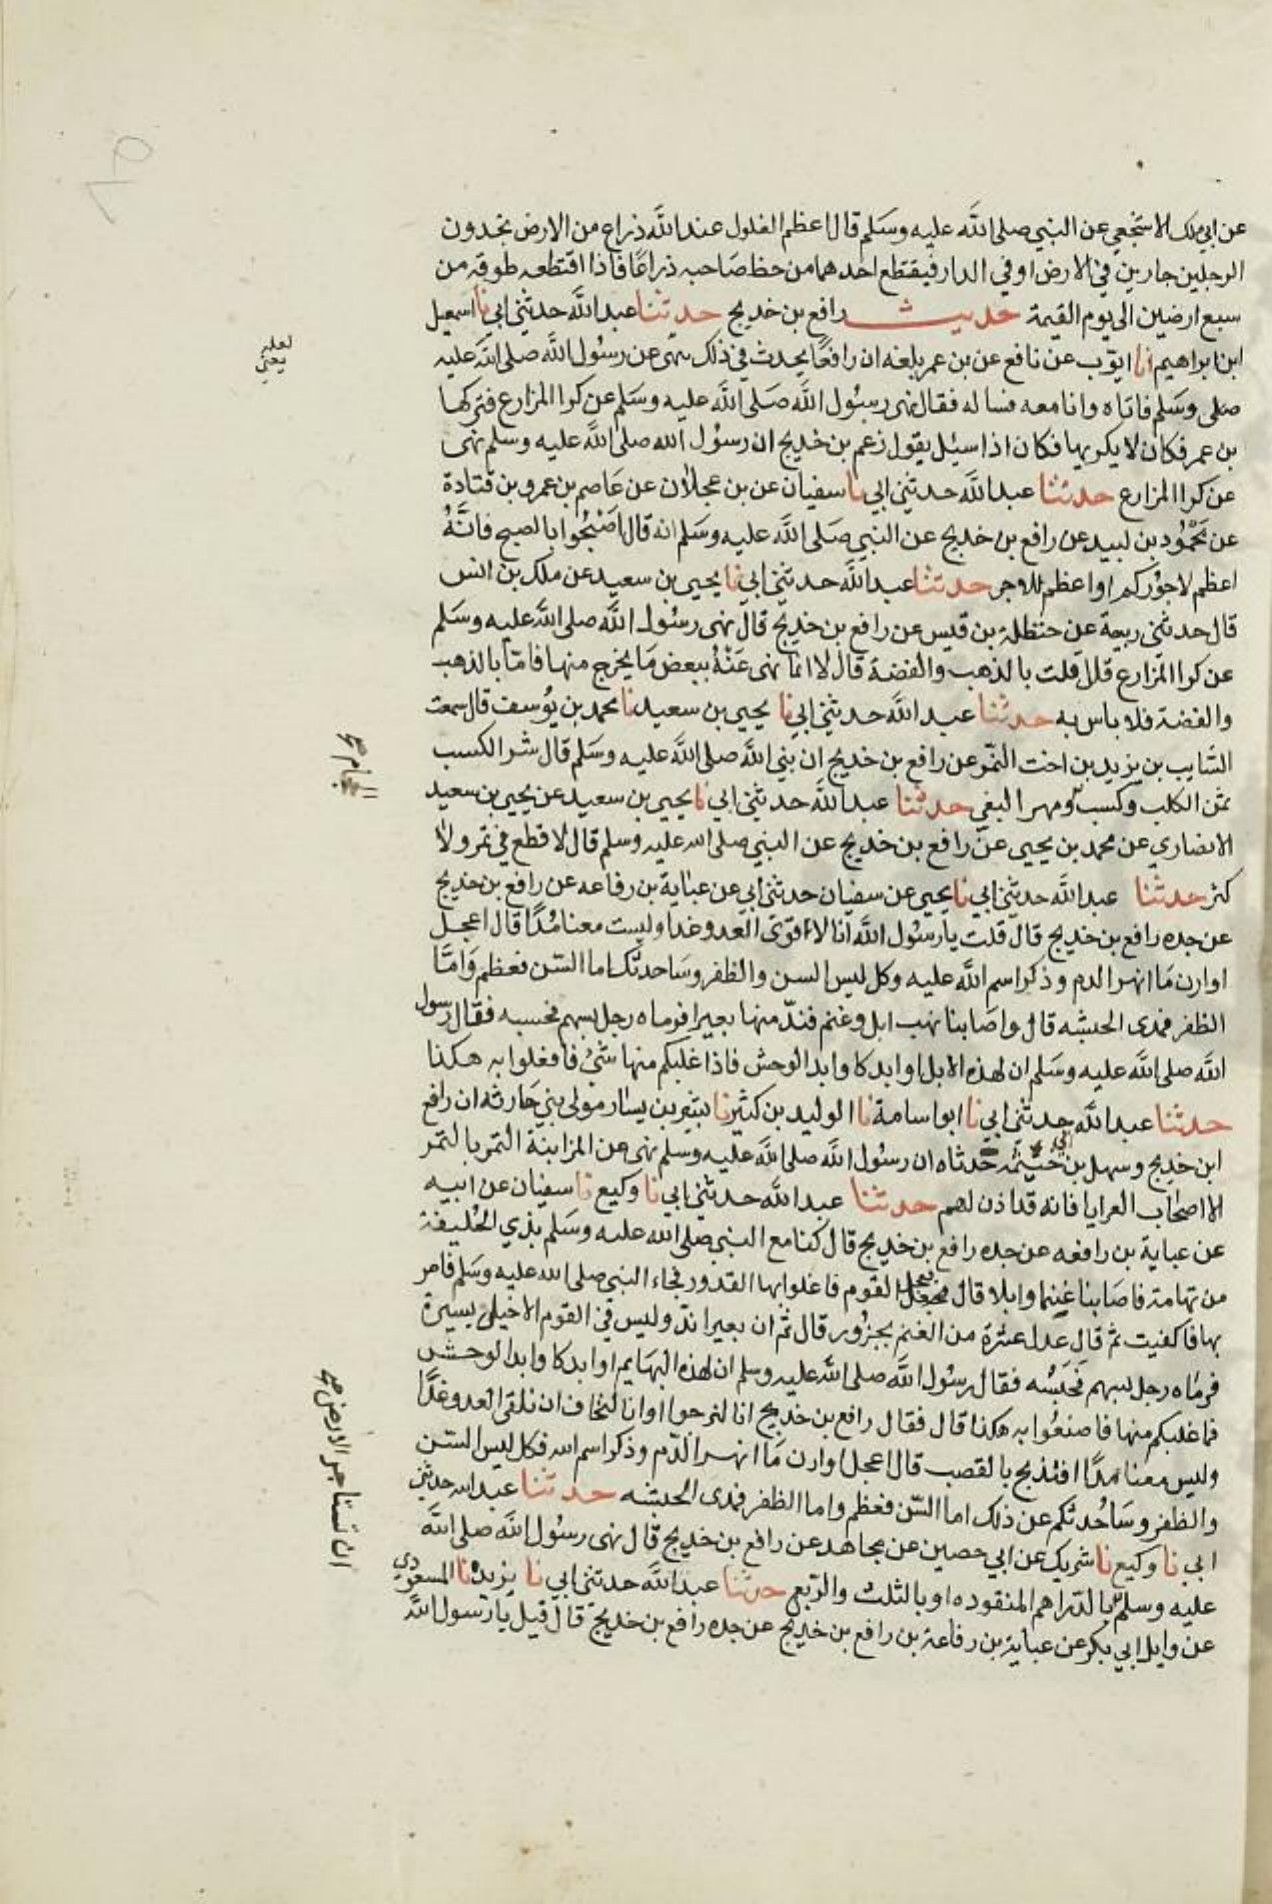 عن ابي ملك الاشجعي عن النبي صلى الله عليه وسلم قال اعظم الغلول عند الله ذراع من الارض تجدون
الرجلين جارين في الارض او في الدار فيقتطع احدهما من حظ صاحبه ذراعًا فاذا اقتطعه طوقه من
سبع ارضين الى يوم القيمة حديث رافع بن خديج حدثنا عبد الله حدثني ابي نا اسمعيل
ابن ابراهيم انا ايوب عن نافع عن بن عمر بلغه ان رافعًا يحدث في ذلك نهى عن رسول الله صلى الله عليه
صلى وسلم فاتاه وانا معه فساله فقال نهى رسول الله صلى الله عليه وسلم عن كرا المزارع فتركها
بن عمر فكان لا يكريها فكان اذا سيئل يقول زعم بن خديج ان رسول الله صلى الله عليه وسلم نهى
عن كرا المزارع حدثنا عبد الله حدثني ابي نا سفيان عن بن عجلان عن عاصم بن عمرو بن قتادة
عن محمود بن لبيد عن رافع بن خديج عن النبي صلى الله عليه وسلم انه قال اصبحوا بالصبح فانه
اعظم لاجوركم او اعظم للاجر حدثنا عبد الله حدثني ابي نا يحيى بن سعيد عن ملك بن انس
قال حدثني ربيعة عن حنظلة بن قيس عن رافع بن خديج قال نهى رسول الله صلى الله عليه وسلم
عن كرا المزارع قلل قلت بالذهب والفضة قال لا انما نهى عنه ببعض ما يخرج منها فامّا بالذهب
والفضة فلا باس به حدثنا عبد الله حدثني ابي نا يحيى بن سعيد نا محمد بن يوسف قال سمعت
السّايب بن يزيد بن اخت النمر عن رافع بن خديج ان نبي الله صلى الله عليه وسلم قال شر الكسب
ثمن الكلب وكسب ومهر البغي حدثنا عبد الله حدثني ابي نا يحيى بن سعيد عن يحيى بن سعيد
الحجام صح
الانصاري عن محمد بن يحيى عن رافع بن خديج عن النبي صلى الله عليه وسلم قال لا قطع في ثمر ولا
كثر حدثنا عبد الله حدثني ابي نا يحيى عن سفيان حدثني ابي عن عباية بن رفاعه عن رافع بن خديج
عن جده رافع بن خديج قال قلت يا رسول الله انا لاقوى العدو غدا وليست معنا مُدًا قال اعجل
او ارن ما انهر الدم وذكر اسم الله عليه وكل ليس السن والظفر وساحدثك اما السّن فعظم وامّا
الظفر فمدى الحبشه قال واصابنا نهب ابل وغنم فندّ منها بعير فرماه رجل بسهم فحبسه فقال رسول
الله صلى الله عليه وسلم ان لهذه الابل اوابد كاوابد الوحش فاذا غلبكم منها شئ فافعلوا به هكذا
حدثنا عبد الله حدثني ابي نا ابو اسامة نا الوليد بن كثير نا بشير بن يسار مولى بني حارثه ان رافع
ابن خديج وسهل بن ابي حثيمه حدثاه ان رسول الله صلى الله عليه وسلم نهى عن المزابنة الثمر بالتمر
الا اصحاب العرايا فانه قد اذن لهم حدثنا عبد الله حدثني ابي نا وكيع نا سفيان عن ابيه
عن عباية بن رافعه عن جده رافع بن خديج قال كنا مع النبي صلى الله عليه وسلم بذي الحليفة
من تهامة فاصابنا غنما وابلا قال فعجل القوم فاغلوا بها القدور فجاء النبي صلى الله عليه وسلم فامر
بها فاكفيت ثم قال عدل عشرة من الغنم بجزور قال ثم ان بعيرا ندّ وليس في القوم الا خيل يسيرة
فرماه رجل بسهم فحبسه فقال رسول الله صلى الله عليه وسلم ان لهذه البهايم اوابد كاوابد الوحش
فما غلبكم منها فاصنعوا به هكذا قال فقال رافع بن خديج انا لنرجوا او انا لنخاف ان نلقى العدو غدًا
وليس معنا مدًا افنذبح بالقصب قال اعجل او ارن ما انهر الدّم وذكر اسم الله فكل ليس السّن
والظفر وساحدثكم عن ذلك اما السّن فعظم واما الظفر فمدى الحبشه حدثنا عبد الله حدثني
ابي نا وكيع نا شريك عن ابي حصين عن مجاهد عن رافع بن خديج قال نهى رسول الله صلى الله
عليه وسلم بالدراهم المنقوده او بالثلث والربع حدثنا عبد الله حدثني ابي نا يزيد نا المسعودي
ان تستاجر الارض صح
عن وايل ابي بكر عن عباية بن رفاعة بن رافع بن خديج عن جده رافع بن خديج قال قيل يا رسول الله